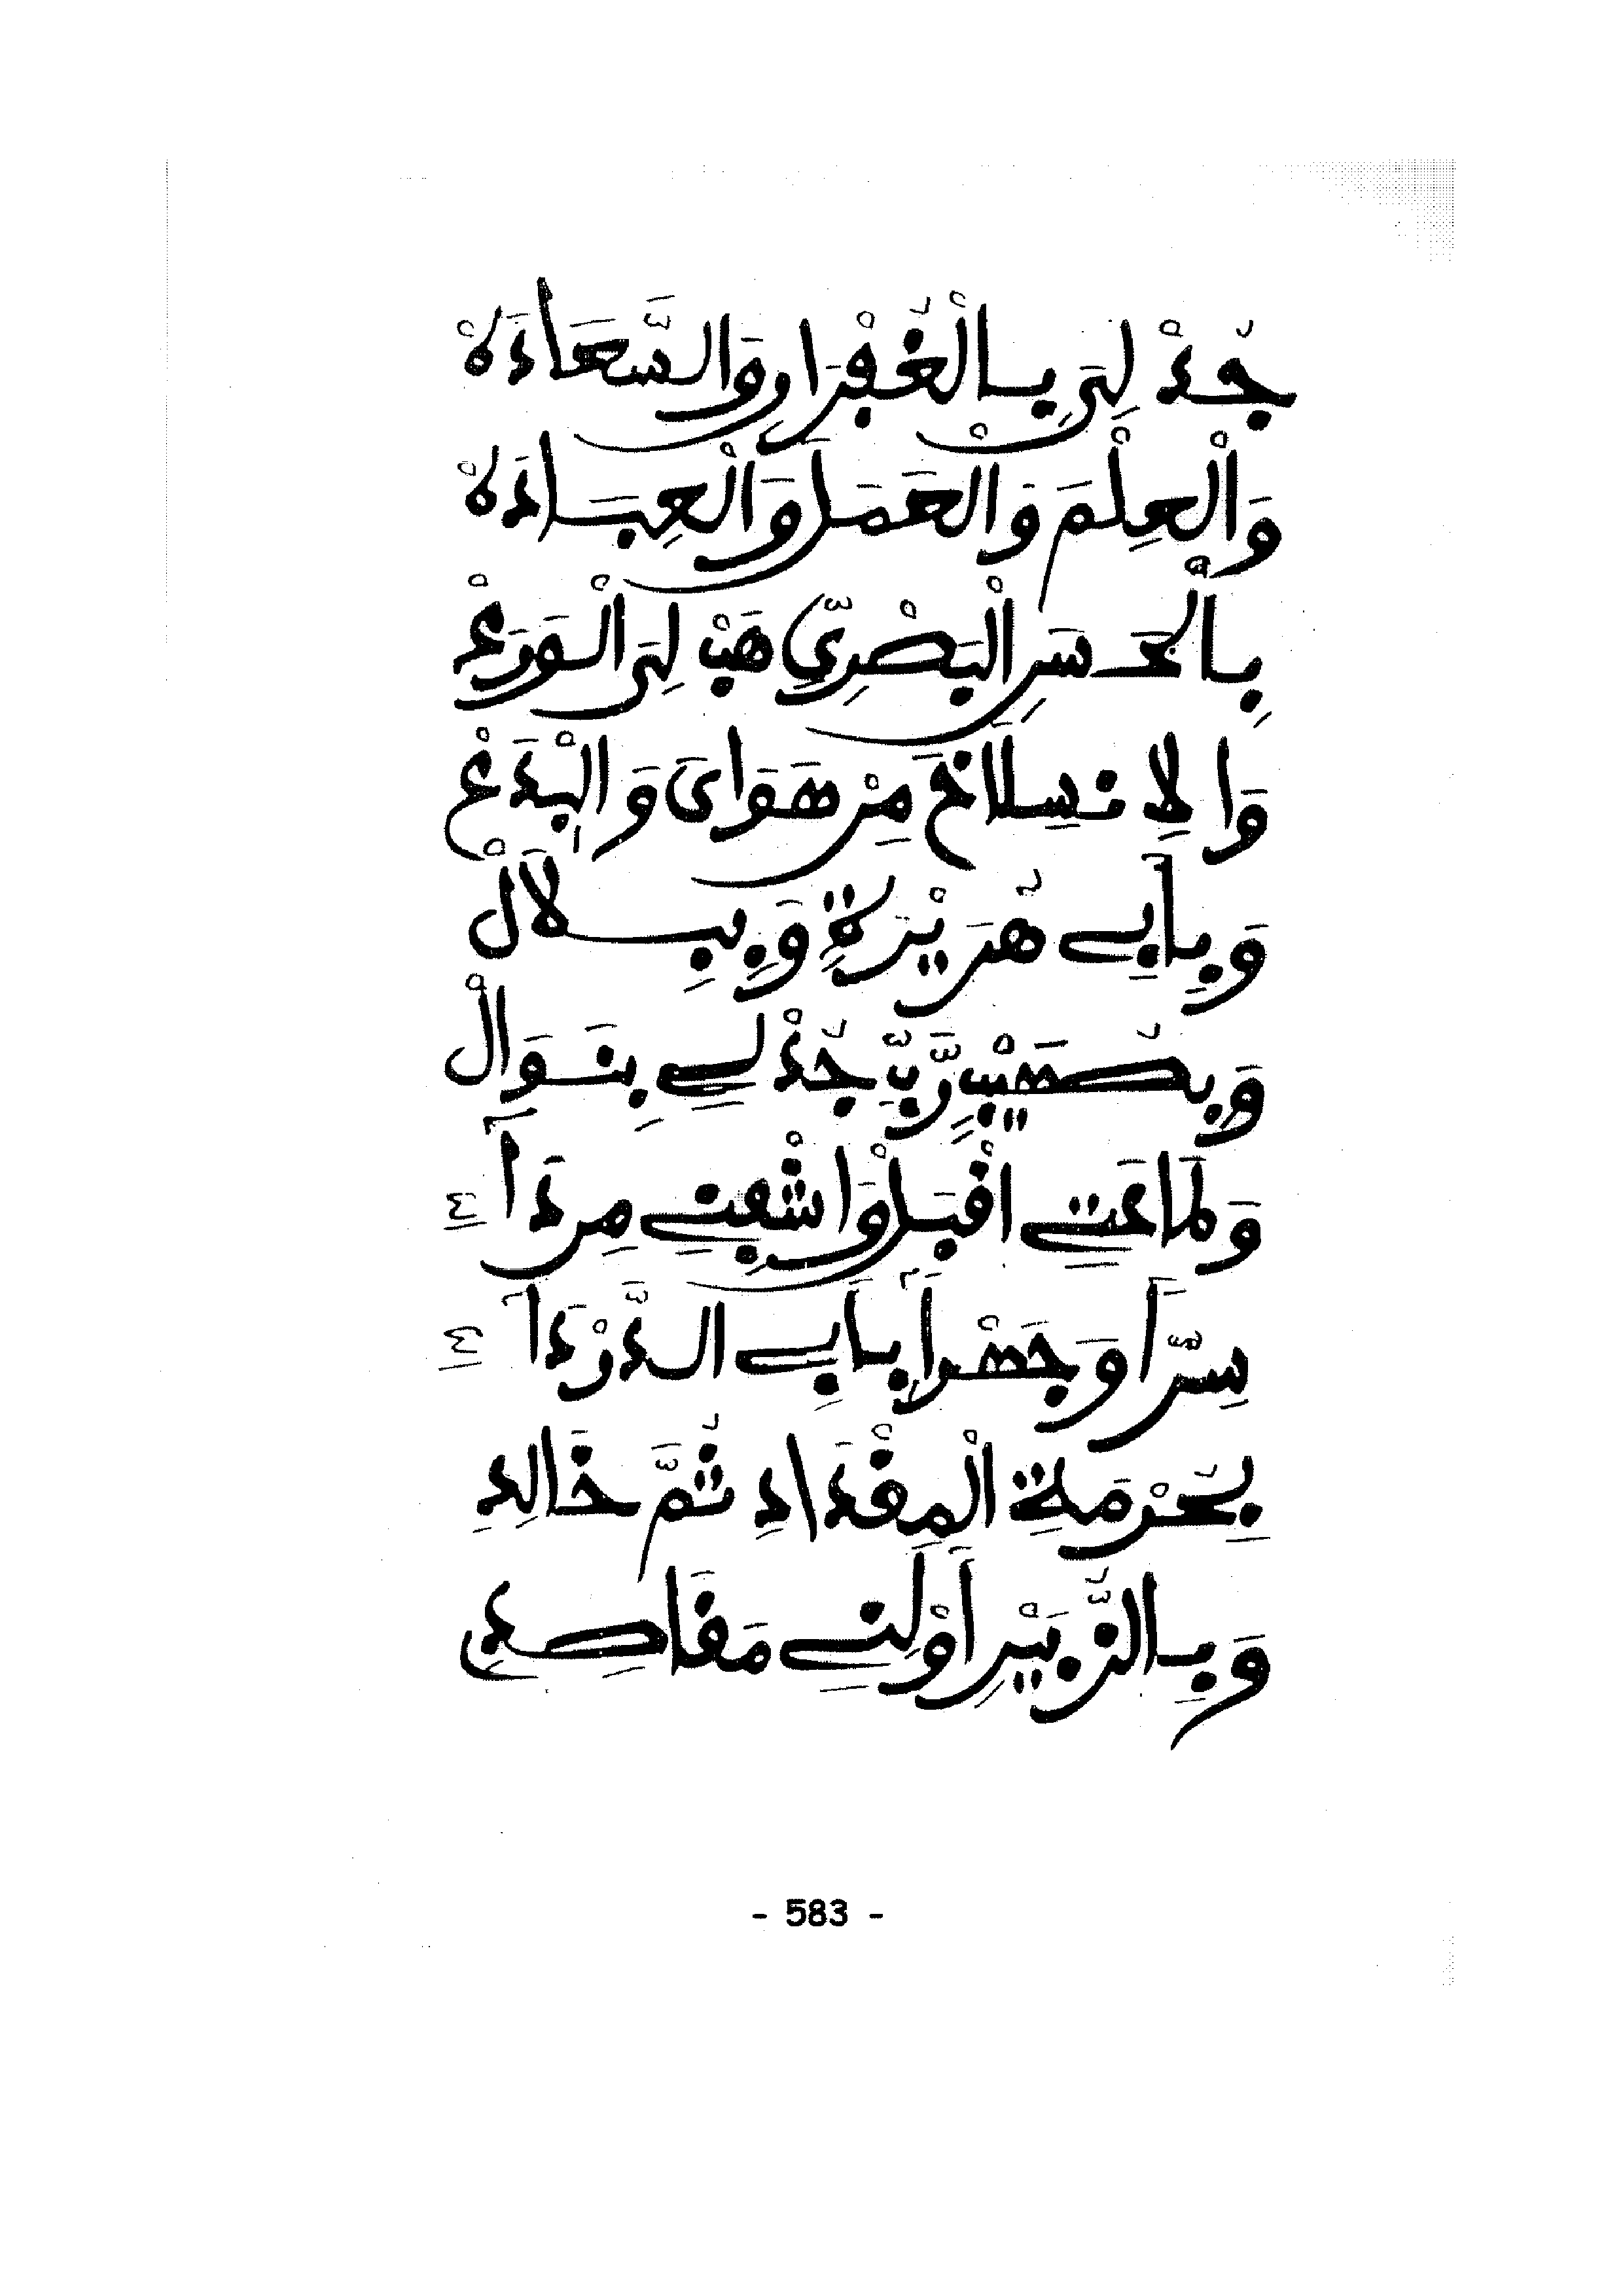 جُدْ لِي بِالْغُفْرَانِ وَالسَّعَادَهْ
وَالْعِلْمَ وَالْعَمَلَ وَالْعِبَادَهْ
بِالْحَسَنِ الْبَصْرِيِّ هَبْ لِيَ الْوَرَعْ
وَالِانْسِلَاخَ مِنْ هَوَايَ وَالْبِدَعْ
وَبِأَبِي هُرَيْرَةٍ وَبِبِلَالْ
وَبِصُهَيْبٍ رَبِّ جُدْ لِي بِنَوَالْ
وَطَاعَتِي اقْبَلْ وَاشْفِنِي مِن دَآ ءٍ
سِرًّا وَجَهْرًا بِأَبِي الدَّرْدَآ ءِ
بِحُرْمَةِ الْمِقْدَادِ ثُمَّ خَالِدِ
وَبِالزُّبَيْرِ أَوْلِنِي مَقَاصِدِي
- 583 -